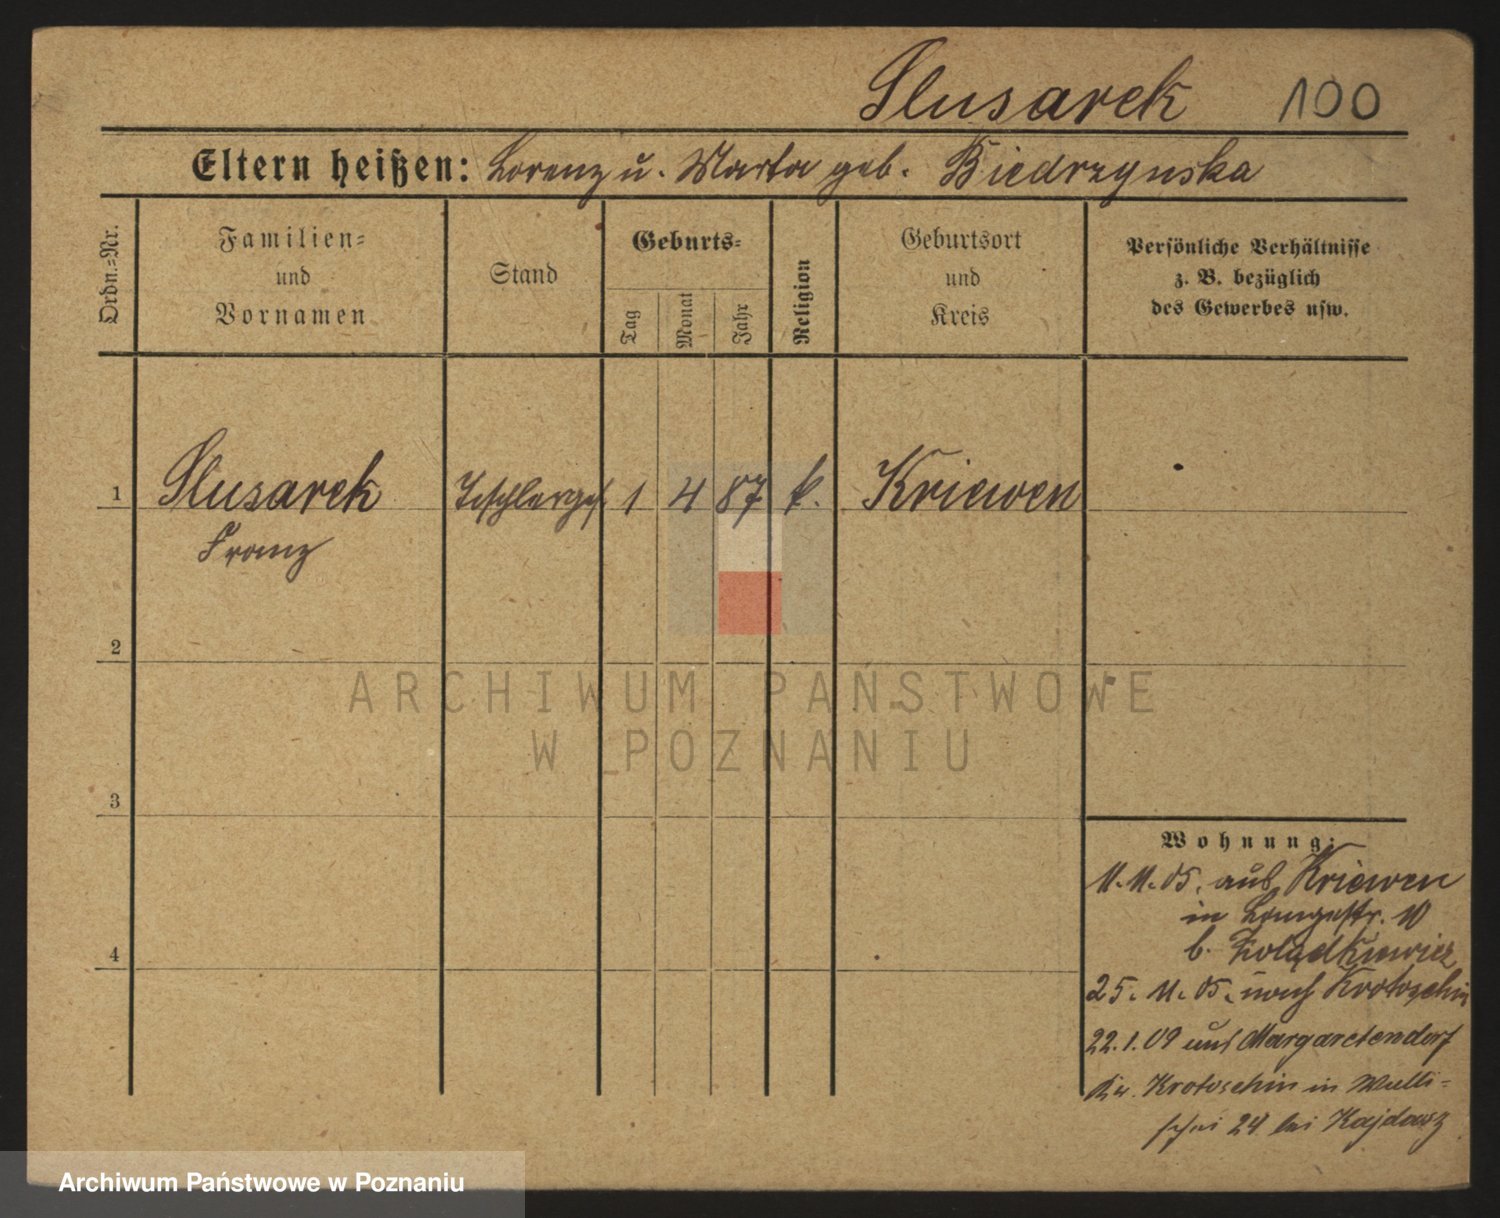 Slusarek 100
Eltern heißen: Lorenz u. Marta geb. Biedrzynska
Ordn.=Nr.
Familien=
und
Vornamen
Stand
Geburts=
Tag
Monat
Jahr
Religion
Geburtsort
und
Kreis
Persönliche Verhältnisse
z. B. bezüglich
des Gewerbes usw.
1 Slusarek Tischlerges. 1 4 87 k. Kriewen
Franz
2
ARCHIWUM PAŃSTWOWE
W POZNANIU
3
Wohnung:
11.11.05. aus Kriewen
in Langestr. 10
b.
4
25. 11. 05. nach Krotoschin
22.1.09 aus Margaretendorf
Kr. Krotoschin in
24 bei Kajdasz
Archiwum Państwowe w Poznaniu